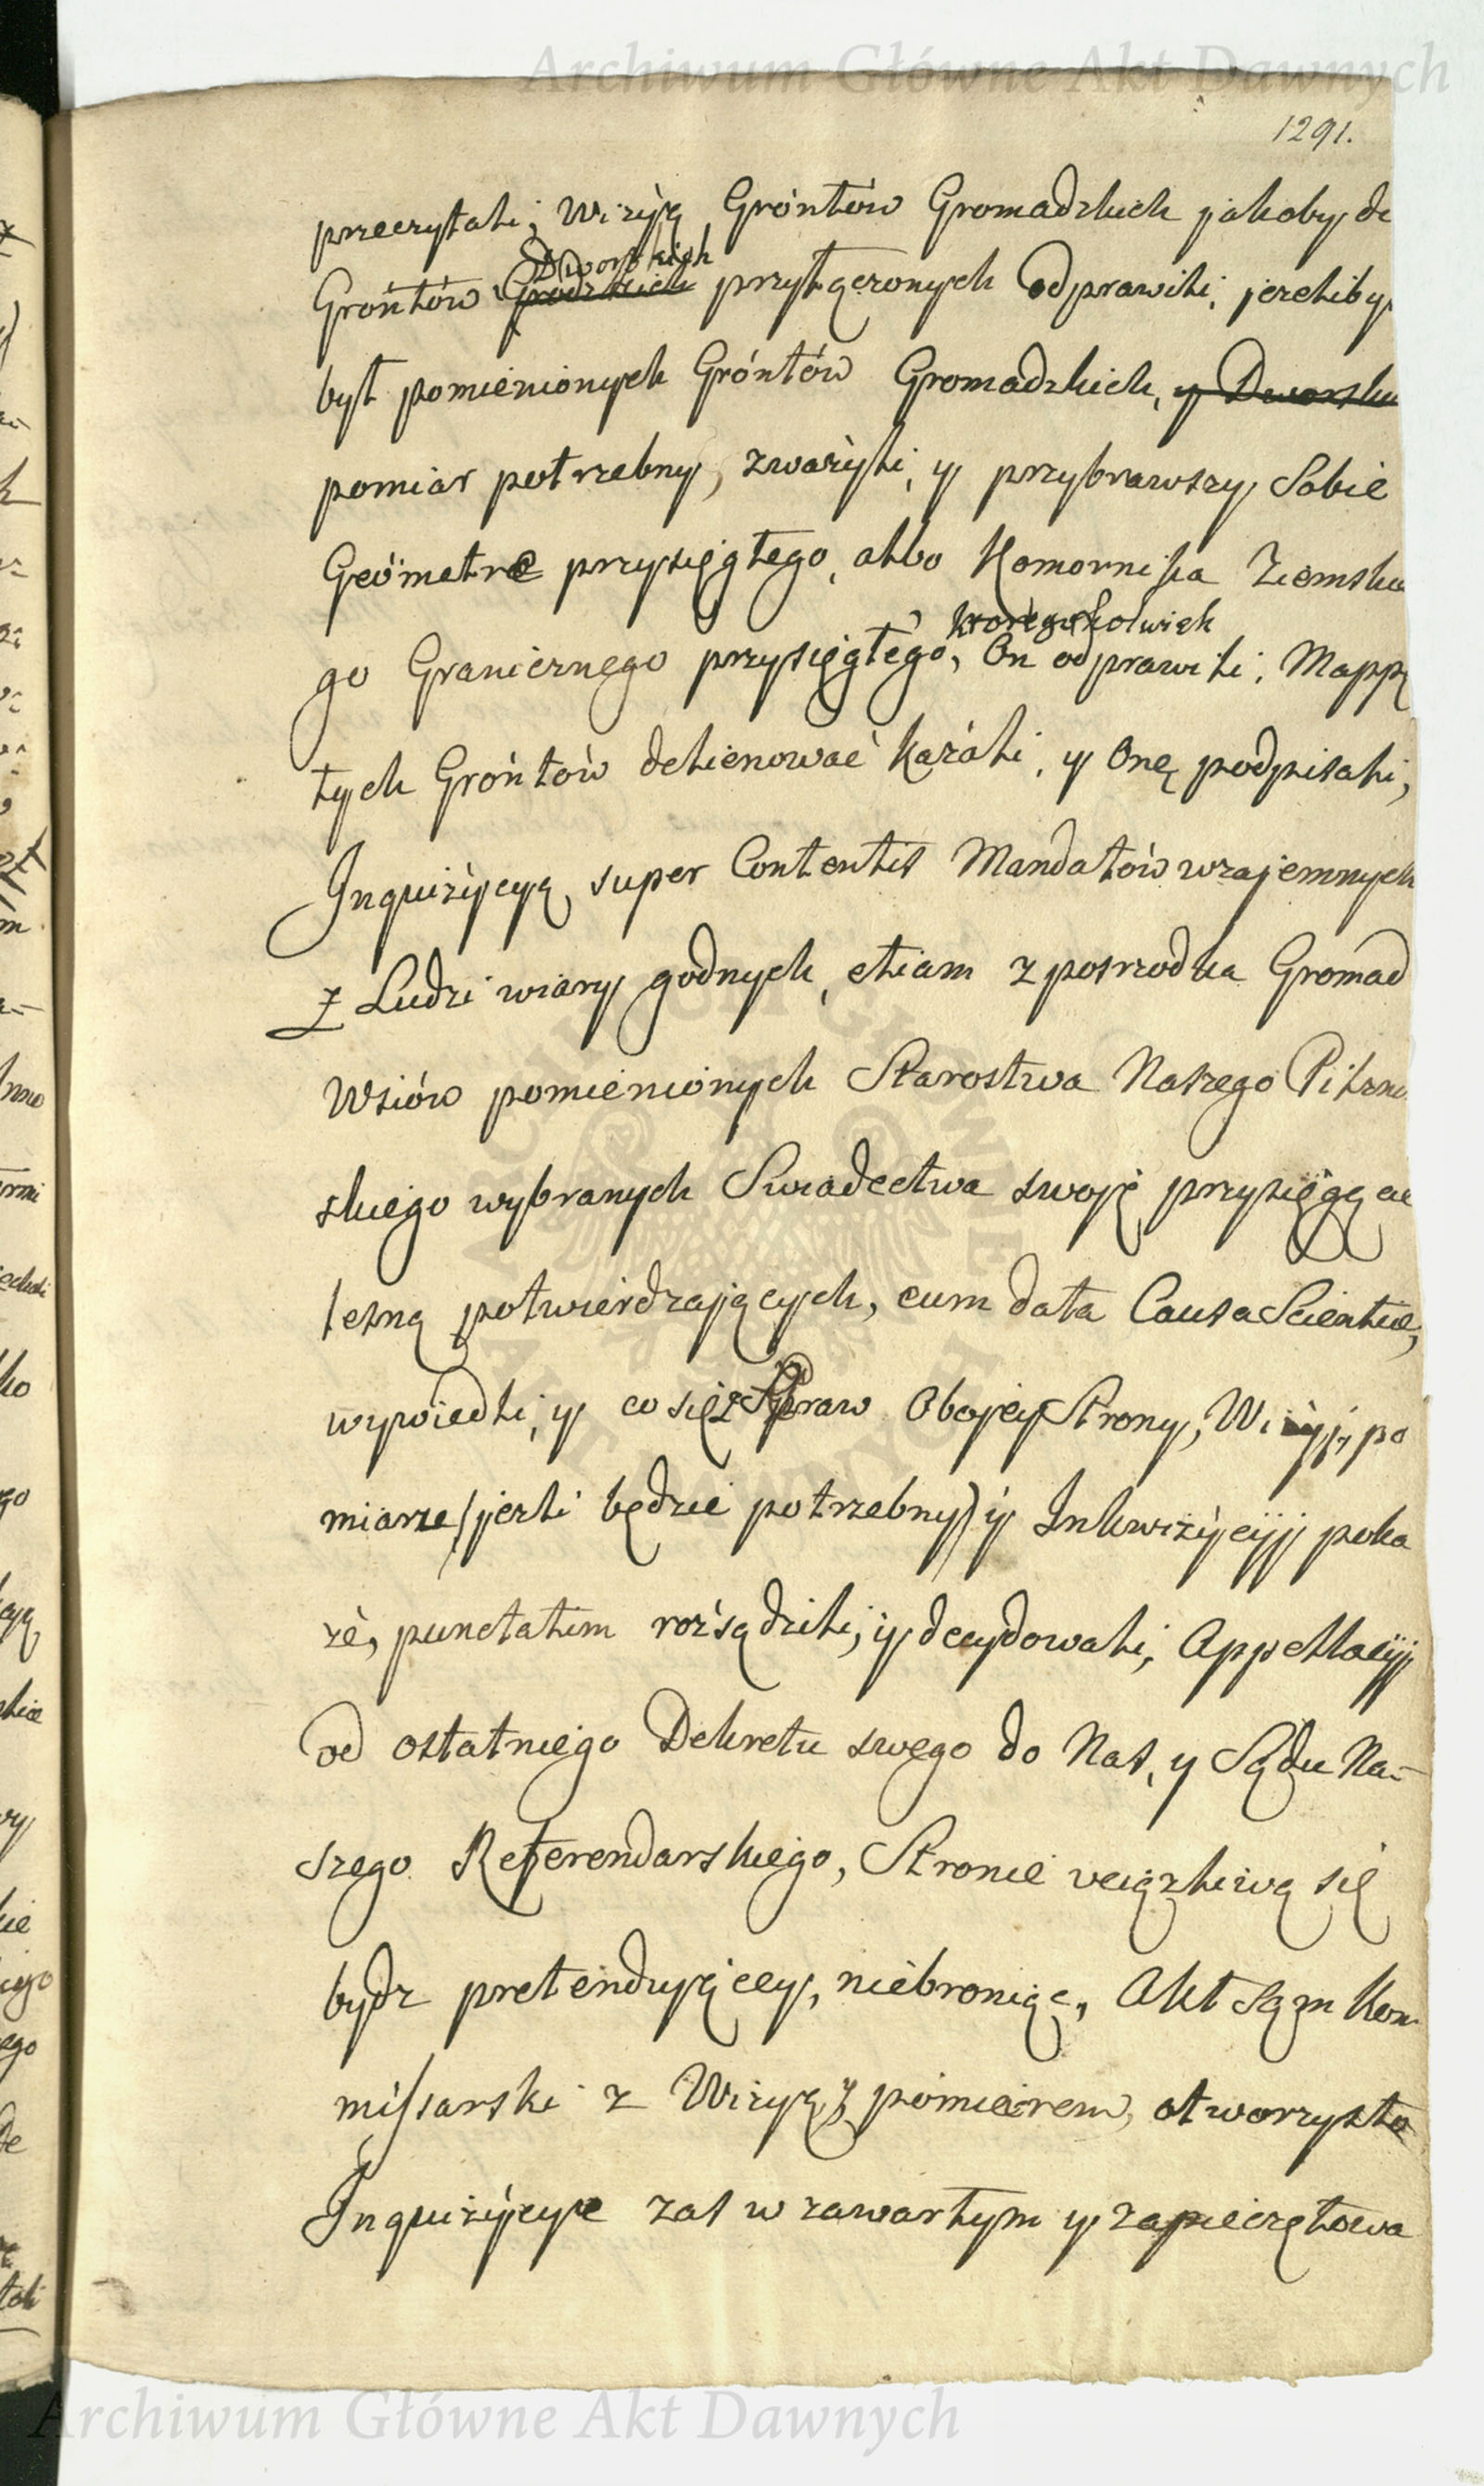 Archiwum Główne Akt Dawnych
1291.
przeczytali, Wizyą Gróntów Gromadzkich jakoby do
Gróntów Grodzkich Dworskich przyłączonych odprawili, jeżeliby
był pomienionych Gróntów Gromadzkich, y Dworskich
pomiar potrzebny, zważyli, y przybrawszy Sobie
Geometrę przysięgłego, albo Komornika Ziemskie
go Granicznego przysięgłego, któregożkolwiek On odprawili, Mappę
tych Gróntów delienować kazali, y Onę podpisali,
Inquizycyą super Contentis Mandatów wzajemnych
z Ludzi wiary godnych, etiam z posrzodka Gromad
Wsiów pomienionych Starostwa Naszego Pilzne
skiego wybranych Swiadectwa swoję przysięgą cie
lesną potwierdzających, cum data Causa Scientiæ,
wywiedli, y co się z Spraw Oboiey Strony, Wizyj, po
miarze (jeżli będzie potrzebny) y Inkwizycyj poka
że, punctatim rozsądzili, y decydowali, Appellacyj
od ostatniego Dekretu swego do Nas, y Sądu Na-
szego Referendarskiego, Stronie uciążliwą się
bydz pretendującey, niebroniąc, Akt sąm Kom
missarski z Wizyą, y pomiarem, otworzysto
Inquizycye zas w zawartym y zapieczętowa
ARCHIWUM GŁÓWNE AKT DAWNYCH
Archiwum Główne Akt Dawnych